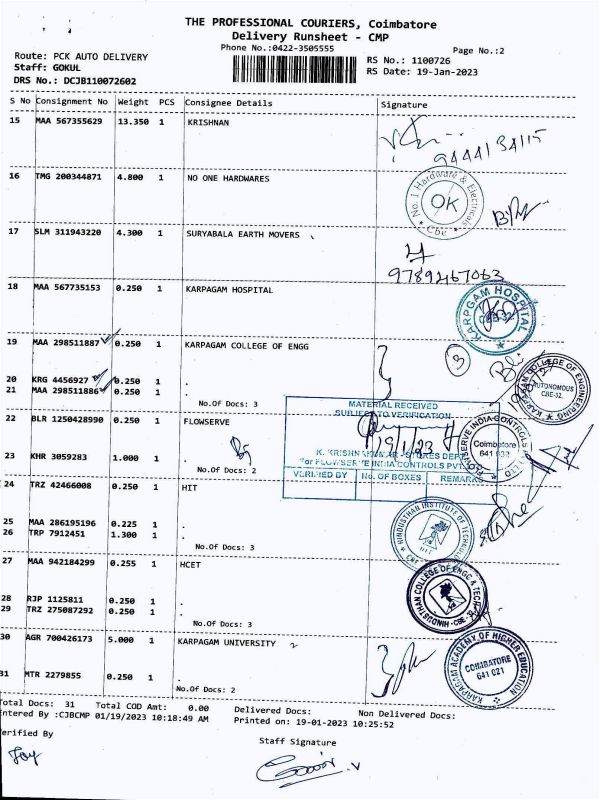 THE PROFESSIONAL COURIERS, Coimbatore
Delivery Runsheet - CMP
Phone No.:0422-3505555
Page No.:2
Route: PCK AUTO DELIVERY
RS No.: 1100726
Staff: GOKUL
RS Date: 19-Jan-2023
DRS No.: DCJB110072602
S No Consignment No Weight PCS Consignee Details Signature
15 MAA 567355629 13.350 1 KRISHNAN
9444134115
16 TMG 200344871 4.800 1 NO ONE HARDWARES
No. 1 Hardware & Electricals OK Cbe
17 SLM 311943220 4.300 1 SURYABALA EARTH MOVERS
9789467063
18 MAA 567735153 0.250 1 KARPAGAM HOSPITAL
KARPGAM HOSPITAL
19 MAA 298511887 0.250 1 KARPAGAM COLLEGE OF ENGG
3
KARPAGAM COLLEGE OF ENGINEERING AUTONOMOUS CBE-32.
20 KRG 4456927 0.250 1 .
21 MAA 298511886 0.250 1 .
No.Of Docs: 3
MATERIAL RECEIVED
SUBJECT TO VERIFICATION
22 BLR 1250428990 0.250 1 FLOWSERVE
19/1/23
FLOWSERVE INDIA CONTROLS Coimbatore 641 032
K. KRISHNAKUMAR - STORES DEPT
For FLOWSERVE INDIA CONTROLS PVT.
23 KHR 3059283 1.000 1 .
No.Of Docs: 2
VERIFIED BY No. OF BOXES REMARKS
24 TRZ 42466008 0.250 1 HIT
HINDUSTHAN INSTITUTE OF TECHNOLOGY
25 MAA 286195196 0.225 1 .
26 TRP 7912451 1.300 1 .
No.Of Docs: 3
27 MAA 942184299 0.255 1 HCET
HINDUSTHAN COLLEGE OF ENGG & TECH
28 RJP 1125811 0.250 1 .
29 TRZ 275087292 0.250 1 .
No.Of Docs: 3
30 AGR 700426173 5.000 1 KARPAGAM UNIVERSITY 2
KARPAGAM ACADEMY OF HIGHER EDUCATION COIMBATORE 641 021
31 MTR 2279855 0.250 1 .
No.Of Docs: 2
Total Docs: 31 Total COD Amt: 0.00 Delivered Docs: Non Delivered Docs:
Entered By :CJBCMP 01/19/2023 10:18:49 AM Printed on: 19-01-2023 10:25:52
Verified By
Staff Signature